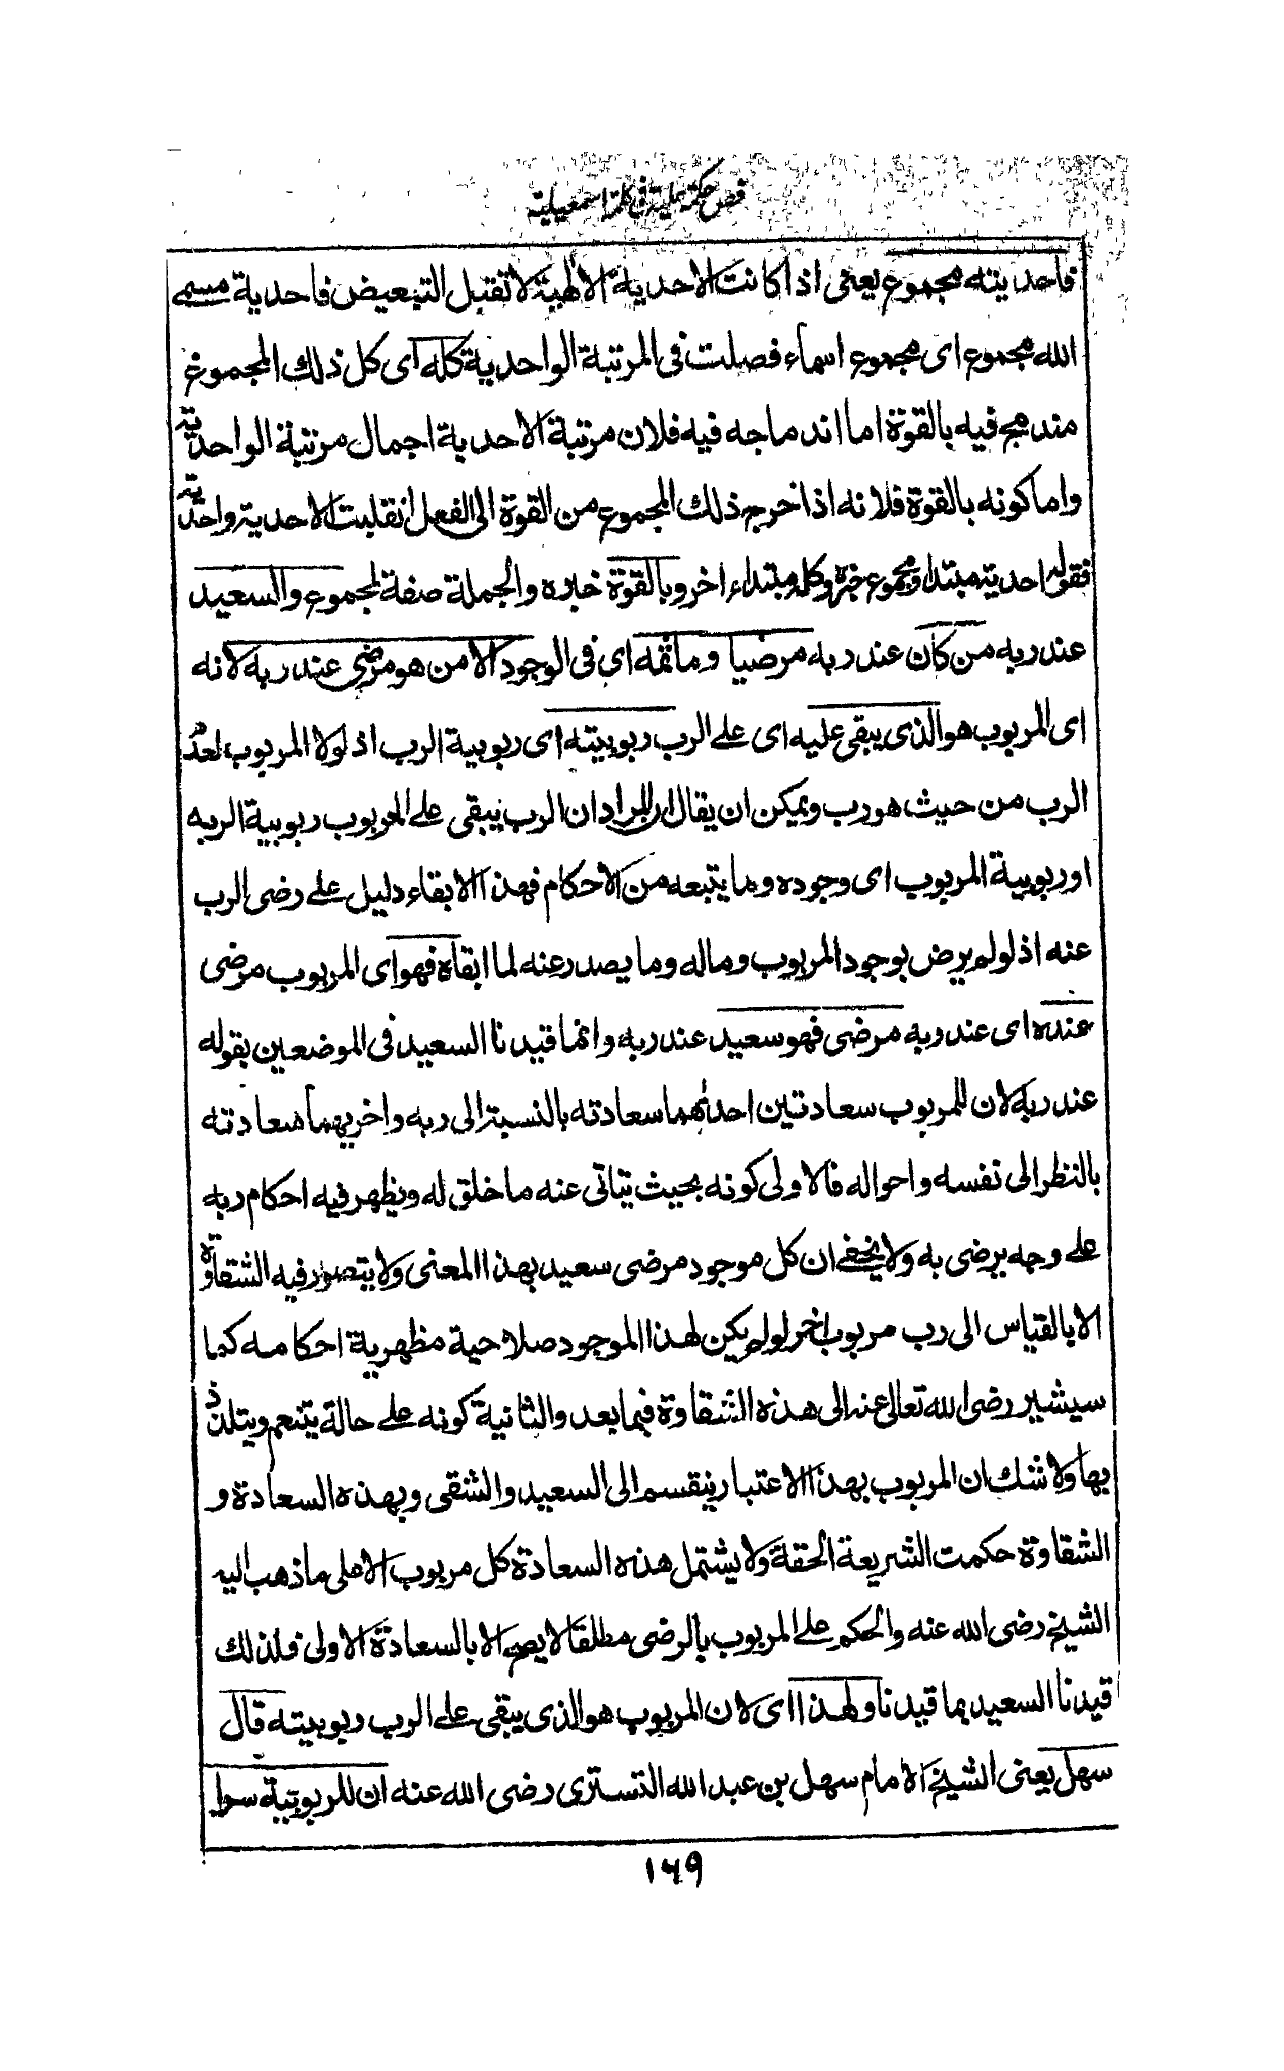 فص حكمة علية فى كلمة اسمعيلية
فاحديته مجموع يعنى اذا كانت الاحدية الالٰهية لا تقبل التبعيض فاحدية مسمى
الله مجموع اى مجموع اسماء فصلت فى المرتبة الواحدية كله اى كل ذلك المجموع
مندمج فيه بالقوة اما اندماجه فيه فلان مرتبة الاحدية اجمال مرتبة الواحدية
واما كونه بالقوة فلانه اذا خرج ذلك المجموع من القوة الى الفعل انقلبت الاحدية واحدية
فقوله احديته مبتداء ومجموع خبره وكله مبتداء اخر وبالقوة خبره والجملة صفة لمجموع والسعيد
عند ربه من كان عند ربه مرضيا وما ثمه اى فى الوجود الا من هو مرضى عند ربه لانه
اى المربوب هو الذى يبقى عليه اى على الرب ربوبيته اى ربوبية الرب اذ لولا المربوب لعدم
الرب من حيث هو رب ويمكن ان يقال ان المراد ان الرب يبقى على المربوب ربوبية الربه
او ربوبية المربوب اى وجوده وما يتبعه من الاحكام فهذا الابقاء دليل على رضى الرب
عنه اذ لو لم يرض بوجود المربوب وماله وما يصدر عنه لما ابقاه فهو اى المربوب مرضى
عنده اى عند ربه مرضى فهو سعيد عند ربه وانما قيدنا السعيد فى الموضعين بقوله
عند ربه لان للمربوب سعادتين احدٰهما سعادته بالنسبة الى ربه واخريهما سعادته
بالنظر الى نفسه واحواله فالاولى كونه بحيث يتاتى عنه ما خلق له ويظهر فيه احكام ربه
على وجه يرضى به ولا يخفى ان كل موجود مرضى سعيد بهذا المعنى ولا يتصور فيه الشقاوة
الا بالقياس الى رب مربوب اخر لو لم يكن لهذا الموجود صلاحية مظهرية احكامه كما
سيشير رضى الله تعالى عنه الى هذه الشقاوة فيما بعد والثانية كونه على حالة يتنعم ويتلذذ
بها ولا شك ان المربوب بهذا الاعتبار ينقسم الى السعيد والشقى وبهذه السعادة و
الشقاوة حكمت الشريعة الحقة ولا يشتمل هذه السعادة كل مربوب الا على ما ذهب اليه
الشيخ رضى الله عنه والحكم على المربوب بالرضى مطلقا لا يصح الا بالسعادة الاولى فلذلك
قيدنا السعيد بما قيدنا ولهذا اى لان المربوب هو الذى يبقى على الرب ربوبيته قال
سهل يعنى الشيخ الامام سهل بن عبد الله التسترى رضى الله عنه ان للربوبية سرا
١٦٩